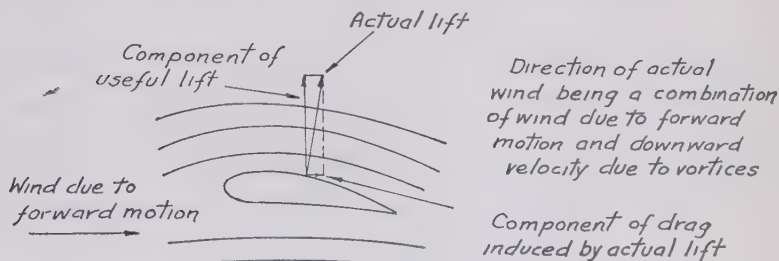 Actual lift
Component of
useful lift
Direction of actual
wind being a combination
of wind due to forward
motion and downward
velocity due to vortices
Wind due to
forward motion
Component of drag
induced by actual lift